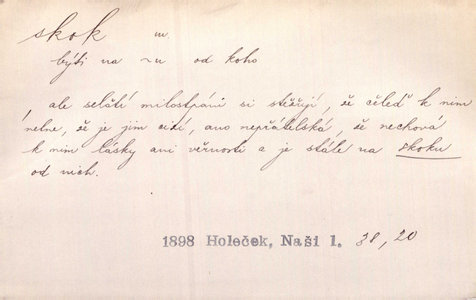 skok m.
býti na ~u od koho
, ale selští milostpáni si stěžují, že čeleď k nim
nelne, že je jim cizí, ano nepřátelská, že nechová
k nim lásky ani věrnosti a je stále na skoku
od nich.
1898 Holeček, Naši 1. 38, 20